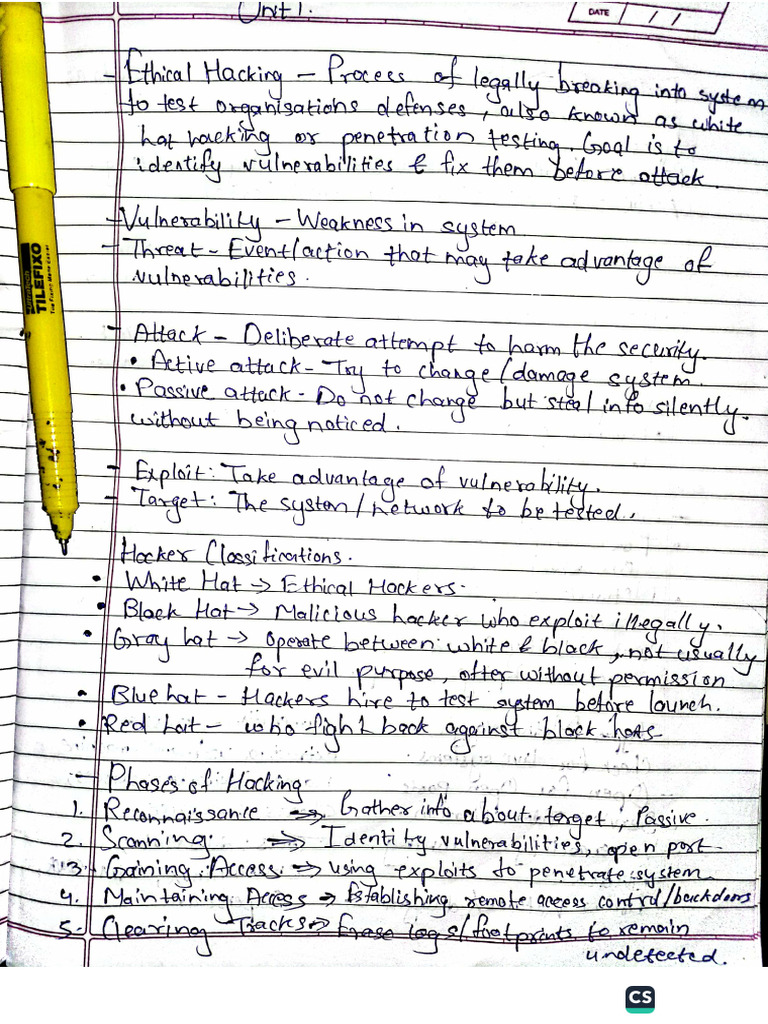 Unit 1.
DATE / /
- Ethical Hacking - Process of legally breaking into system
to test organisations defenses, also known as white
hat hacking or penetration testing. Goal is to
identify vulnerabilities & fix them before attack.
- Vulnerability - Weakness in system
- Threat - Event/action that may take advantage of
vulnerabilities.
- Attack - Deliberate attempt to harm the security.
• Active attack - Try to change/damage system.
• Passive attack - Do not change but steal info silently.
without being noticed.
- Exploit: Take advantage of vulnerability.
- Target: The system/network to be tested.
Hacker Classifications.
• White Hat → Ethical Hackers.
• Black Hat → Malicious hacker who exploit illegally.
• Gray hat → Operate between white & black, not usually
for evil purpose, often without permission
• Blue hat - Hackers hire to test system before launch.
• Red hat - who fight back against black hats
- Phases of Hacking.
1. Reconnaissance ⇒ Gather info about target, Passive.
2. Scanning. ⇒ Identity vulnerabilities, open port
3. Gaining Access ⇒ using exploits to penetrate system
4. Maintaining Access ⇒ Establishing remote access control/backdoors
5. Clearing Tracks ⇒ Erase logs/footprints to remain
undetected.
TILEFIXO
CS